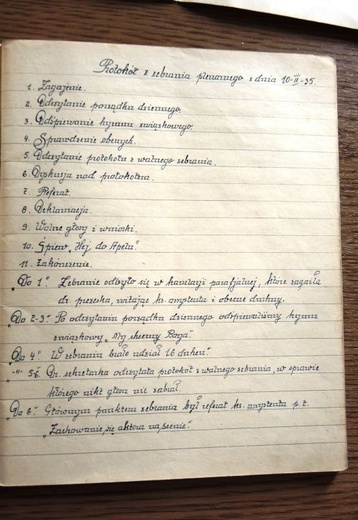 Protokół z zebrania plenarnego z dnia 10-III-35
1. Zagajenie.
2. Odczytanie porządku dziennego,
3. Odśpiewanie hymnu związkowego,
4. Sprawdzenie obecnych.
5. Odczytanie protokołu z walnego zebrania.
6. Dyskusja nad protokołem.
7. Referat.
8. Deklamacja.
9. Wolne głosy i wnioski.
10. Śpiew „Hej, do Apelu"
11. Zakończenie.
„Do 1" Zebranie odbyło się w kancelarji parafjalnej, które zagaiła
dr. prezeska, witając ks. asystenta i obecne druhny.
„Do 2-3" Po odczytaniu porządku dziennego odśpiewaliśmy hymn
związkowy „My chcemy Boga".
„Do 4" W zebraniu brało udział 16 druhen".
-"- 5" Dr. sekretarka odczytała protokół z walnego zebrania, w sprawie
którego nikt głosu nie zabrał.
„Do 6" Głównym punktem zebrania był referat ks. asystenta p. t.
„Zachowanie się aktora na scenie".